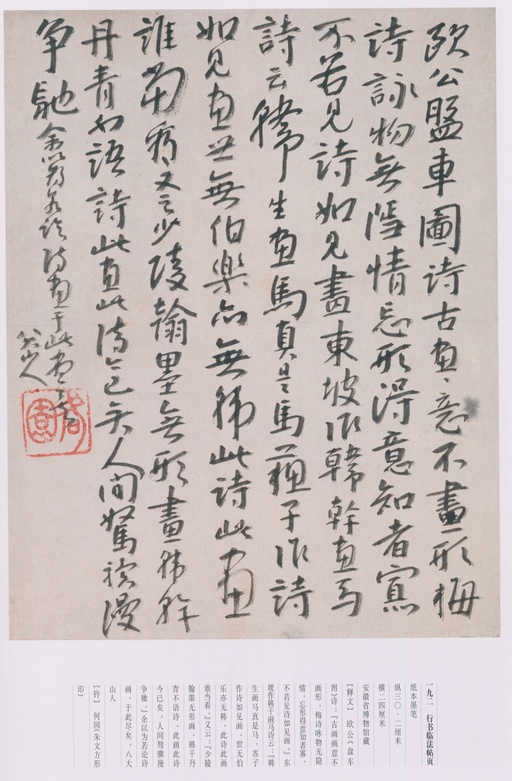 歐公盤車圖詩古畫〻意不畫形梅
詩詠物無隱情忘形得意知者寡
不若見詩如見畫東坡作韓幹畫馬
詩云韓生畫馬真是馬蘇子作詩
如見畫世無伯樂亦無韓此詩此畫
誰當看又云少陵翰墨無形畫韓幹
丹青不語詩此畫此詩今已矣人間駑驥漫
爭馳余以為若論詩畫于此盡矣
八大山人
何園
一九二 行书临法帖页
纸本墨笔
纵三〇·二厘米
横二四厘米
安徽省博物馆藏
【释文】 欧公《盘车
图》诗：『古画画意不
画形，梅诗咏物无隐
情。忘形得意知者寡，
不若见诗如见画。』东
坡作韩干画马诗云：『韩
生画马真是马，苏子
作诗如见画。世无伯
乐亦无韩，此诗此画
谁当看。』又云：『少陵
翰墨无形画，韩干丹
青不语诗。此画此诗
今已矣，人间驽骥漫
争驰。』余以为若论诗
画，于此尽矣。八大
山人
【钤】 何园(朱文方形
印)